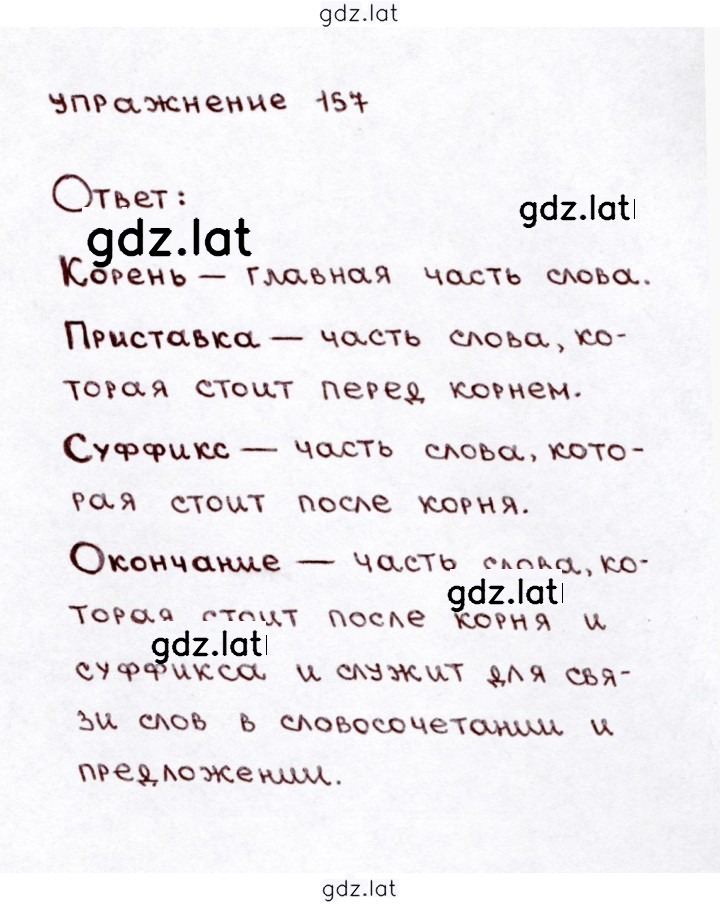 gdz.lat
упражнение 157
Ответ:
gdz.lat
gdz.lat
Корень — главная часть слова.
Приставка — часть слова, ко-
торая стоит перед корнем.
Суффикс — часть слова, кото-
рая стоит после корня.
Окончание — часть слова, ко-
gdz.lat
торая стоит после корня и
gdz.lat
суффикса и служит для свя-
зи слов в словосочетании и
предложении.
gdz.lat